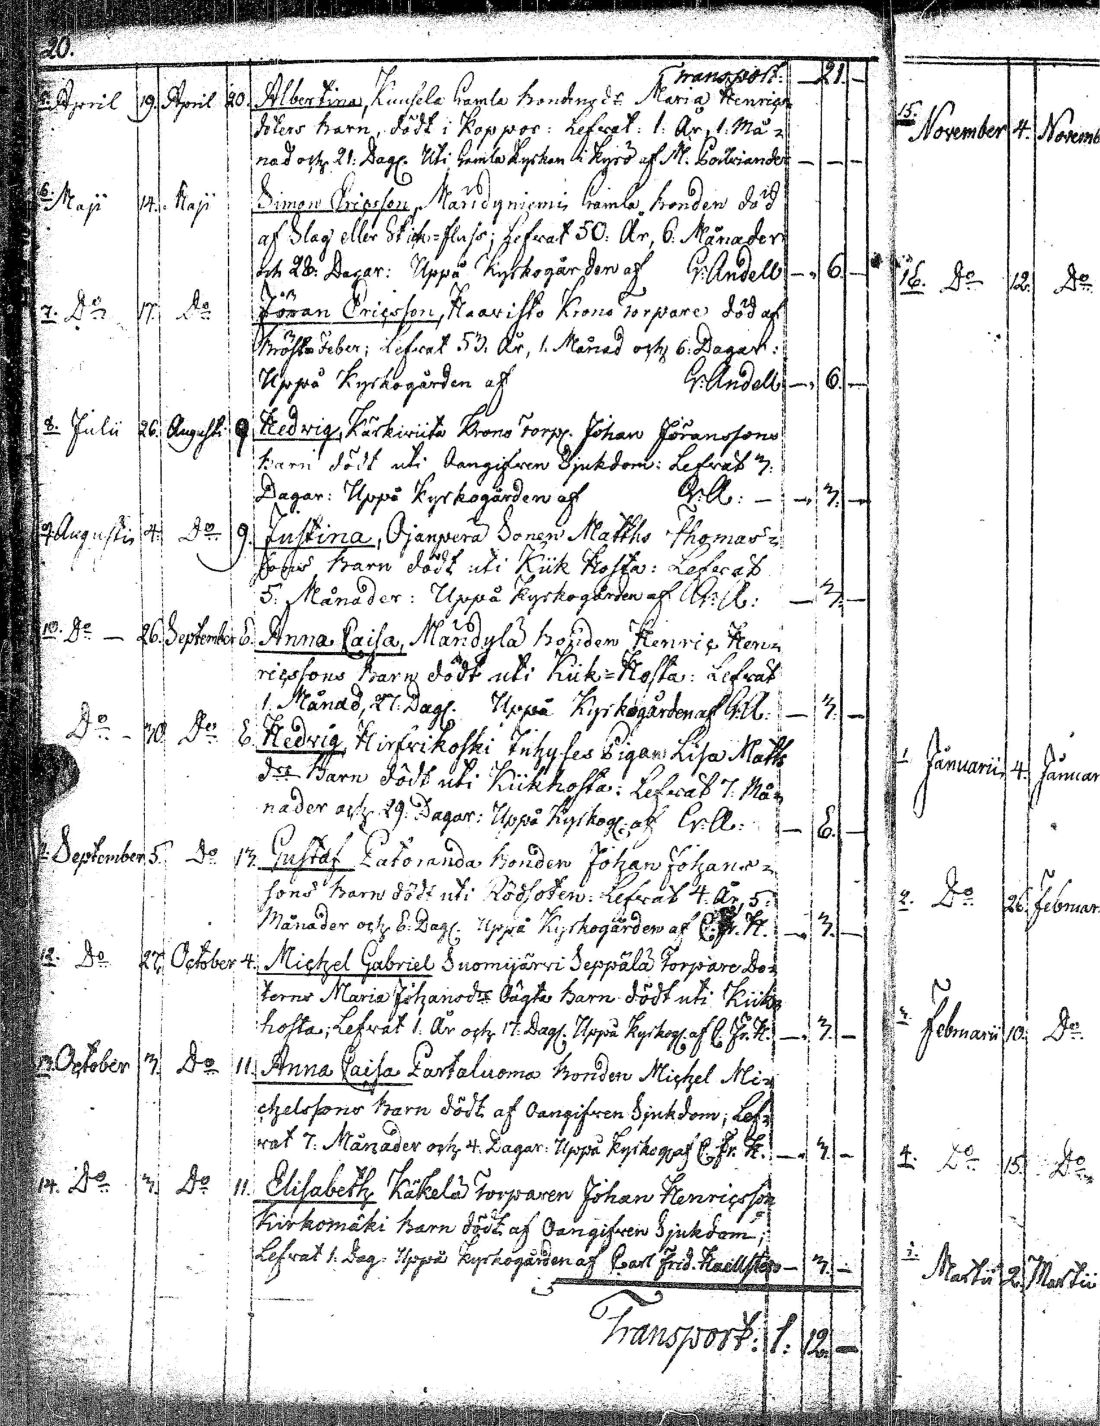 20.
Transport: — 21. —
5. April 19. April 20. Albertina, Kuusela Gamla bondens dr Maria Henrics
doters barn, dödt i Koppor: Lefvat: 1: År, 1: Må=
nad och 21: Dag. Uti Gamla Kyrkan i Kyrö af M. — — —
6. Maji 14. Maji Simon Ericsson, Maridyniemis Gamla bonden död
af Slag eller Stick=fluss; Lefvat 50: År, 6. Månader
och 28: Dagar: Uppå Kyrkogården af G: Andell — 6. —
7. Do 17. Do Jöran Ericsson, Haavisto Krono Torpare död af
Bröst Feber; Lefvat 53. År, 1. Månad och 6: Dagar:
Uppå Kyrkogården af G: Andell — 6. —
8. Julii 26. Augusti 9 Hedwig, Kärkiviita Krono Torp. Johan Jöranssons
barn dödt uti Oangifven Sjukdom: Lefvat 3:
Dagar: Uppå Kyrkogården af G: A: — 3. —
9. Augusti 4. Do 9. Justina, Ojanperä Sonen Matths Thomas=
sons barn dödt uti Kik Hosta: Lefvat
5: Månader: Uppå Kyrkogården af G: A: — 3. —
10. Do — 26. September 6. Anna Caisa, Maridylä bonden Henric Hen=
ricssons barn dödt uti Kik=Hosta: Lefvat
1. Månad, 27. Dag. Uppå Kyrkogården af G: A: — 3. —
Do — 30. Do 6. Hedwig, Hirfvikoski Inhyses Pigan Lisa Matts
dr barn dödt uti Kikhosta: Lefvat 7. Må=
nader och 29. Dagar: Uppå Kyrkog. af G: A: — 6. —
September 5. Do 13. Gustaf Latoranda bonden Johan Johans=
sons barn dödt uti Rödsoten: Lefvat 4. År, 5.
Månader och 6. Dag. Uppå Kyrkogården af C. Fr. H. — 3. —
12. Do 27. October 4. Michel Gabriel Suomijärvi Seppälä Torpare Do=
terns Maria Johansdr Oägta barn dödt uti Kik
hosta; Lefvat 1. År och 17. Dag. Uppå Kyrkog. af C. Fr. H. — 3. —
13. October 3. Do 11. Anna Caisa Partaluoma bonden Michel Mi=
chelssons barn dödt af Oangifven Sjukdom; Lef=
vat 7. Månader och 4. Dagar: Uppå Kyrkog. af C. Fr. H. — 3. —
14. Do 3. Do 11. Elisabeth, Käkelä Torparen Johan Henricsson
Kirkomäki barn dödt af Oangifven Sjukdom;
Lefvat 1. Dag. Uppå Kyrkogården af Carl Frid. — 3. —
Transport: 1: 12. —
15. November 4. Novemb
16. Do 12. Do
1 Januarii 4. Januar
2. Do 26. Februar
3. Februarii 10. Do
4. Do 15. Do
5. Martii 2. Martii